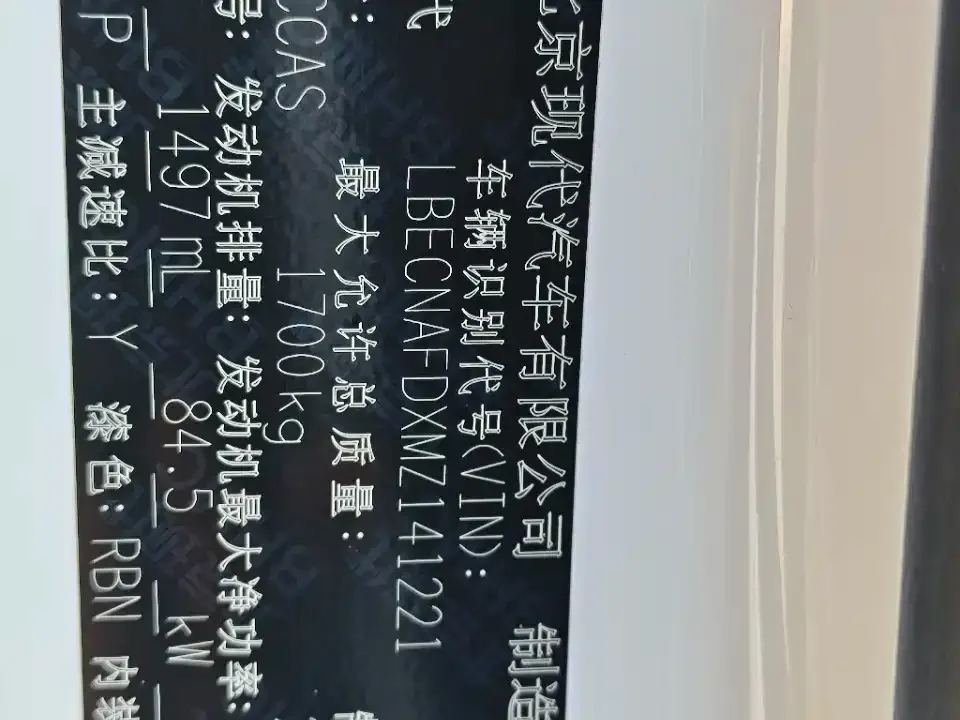 北京现代汽车有限公司 制造
代 车辆识别代号(VIN):
LBECNAFDXMZ141221
最大允许总质量:
CCAS 1700kg
号: 发动机排量: 发动机最大净功率:
P 1497mL 84.5 kW
主减速比: Y 漆色: RBN 内